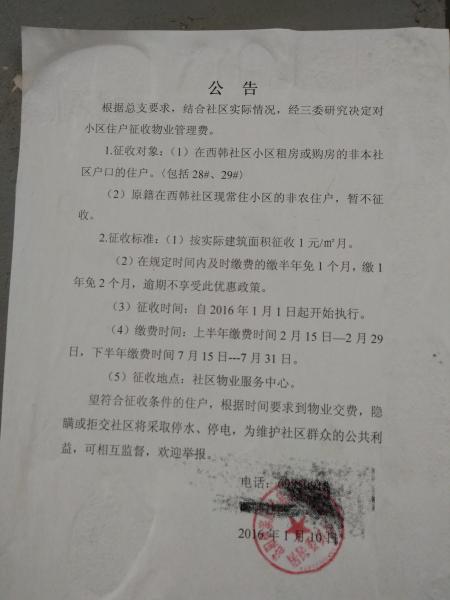 公 告
根据总支要求，结合社区实际情况，经三委研究决定对
小区住户征收物业管理费。
1.征收对象：（1）在西韩社区小区租房或购房的非本社
区户口的住户。（包括 28#、29#）
（2）原籍在西韩社区现常住小区的非农住户，暂不征
收。
2.征收标准：（1）按实际建筑面积征收 1 元/㎡月。
（2）在规定时间内及时缴费的缴半年免 1 个月，缴 1
年免 2 个月，逾期不享受此优惠政策。
（3）征收时间：自 2016 年 1 月 1 日起开始执行。
（4）缴费时间：上半年缴费时间 2 月 15 日—2 月 29
日，下半年缴费时间 7 月 15 日---7 月 31 日。
（5）征收地点：社区物业服务中心。
望符合征收条件的住户，根据时间要求到物业交费，隐
瞒或拒交社区将采取停水、停电，为维护社区群众的公共利
益，可相互监督，欢迎举报。
电话：
2016 年 1 月 10 日